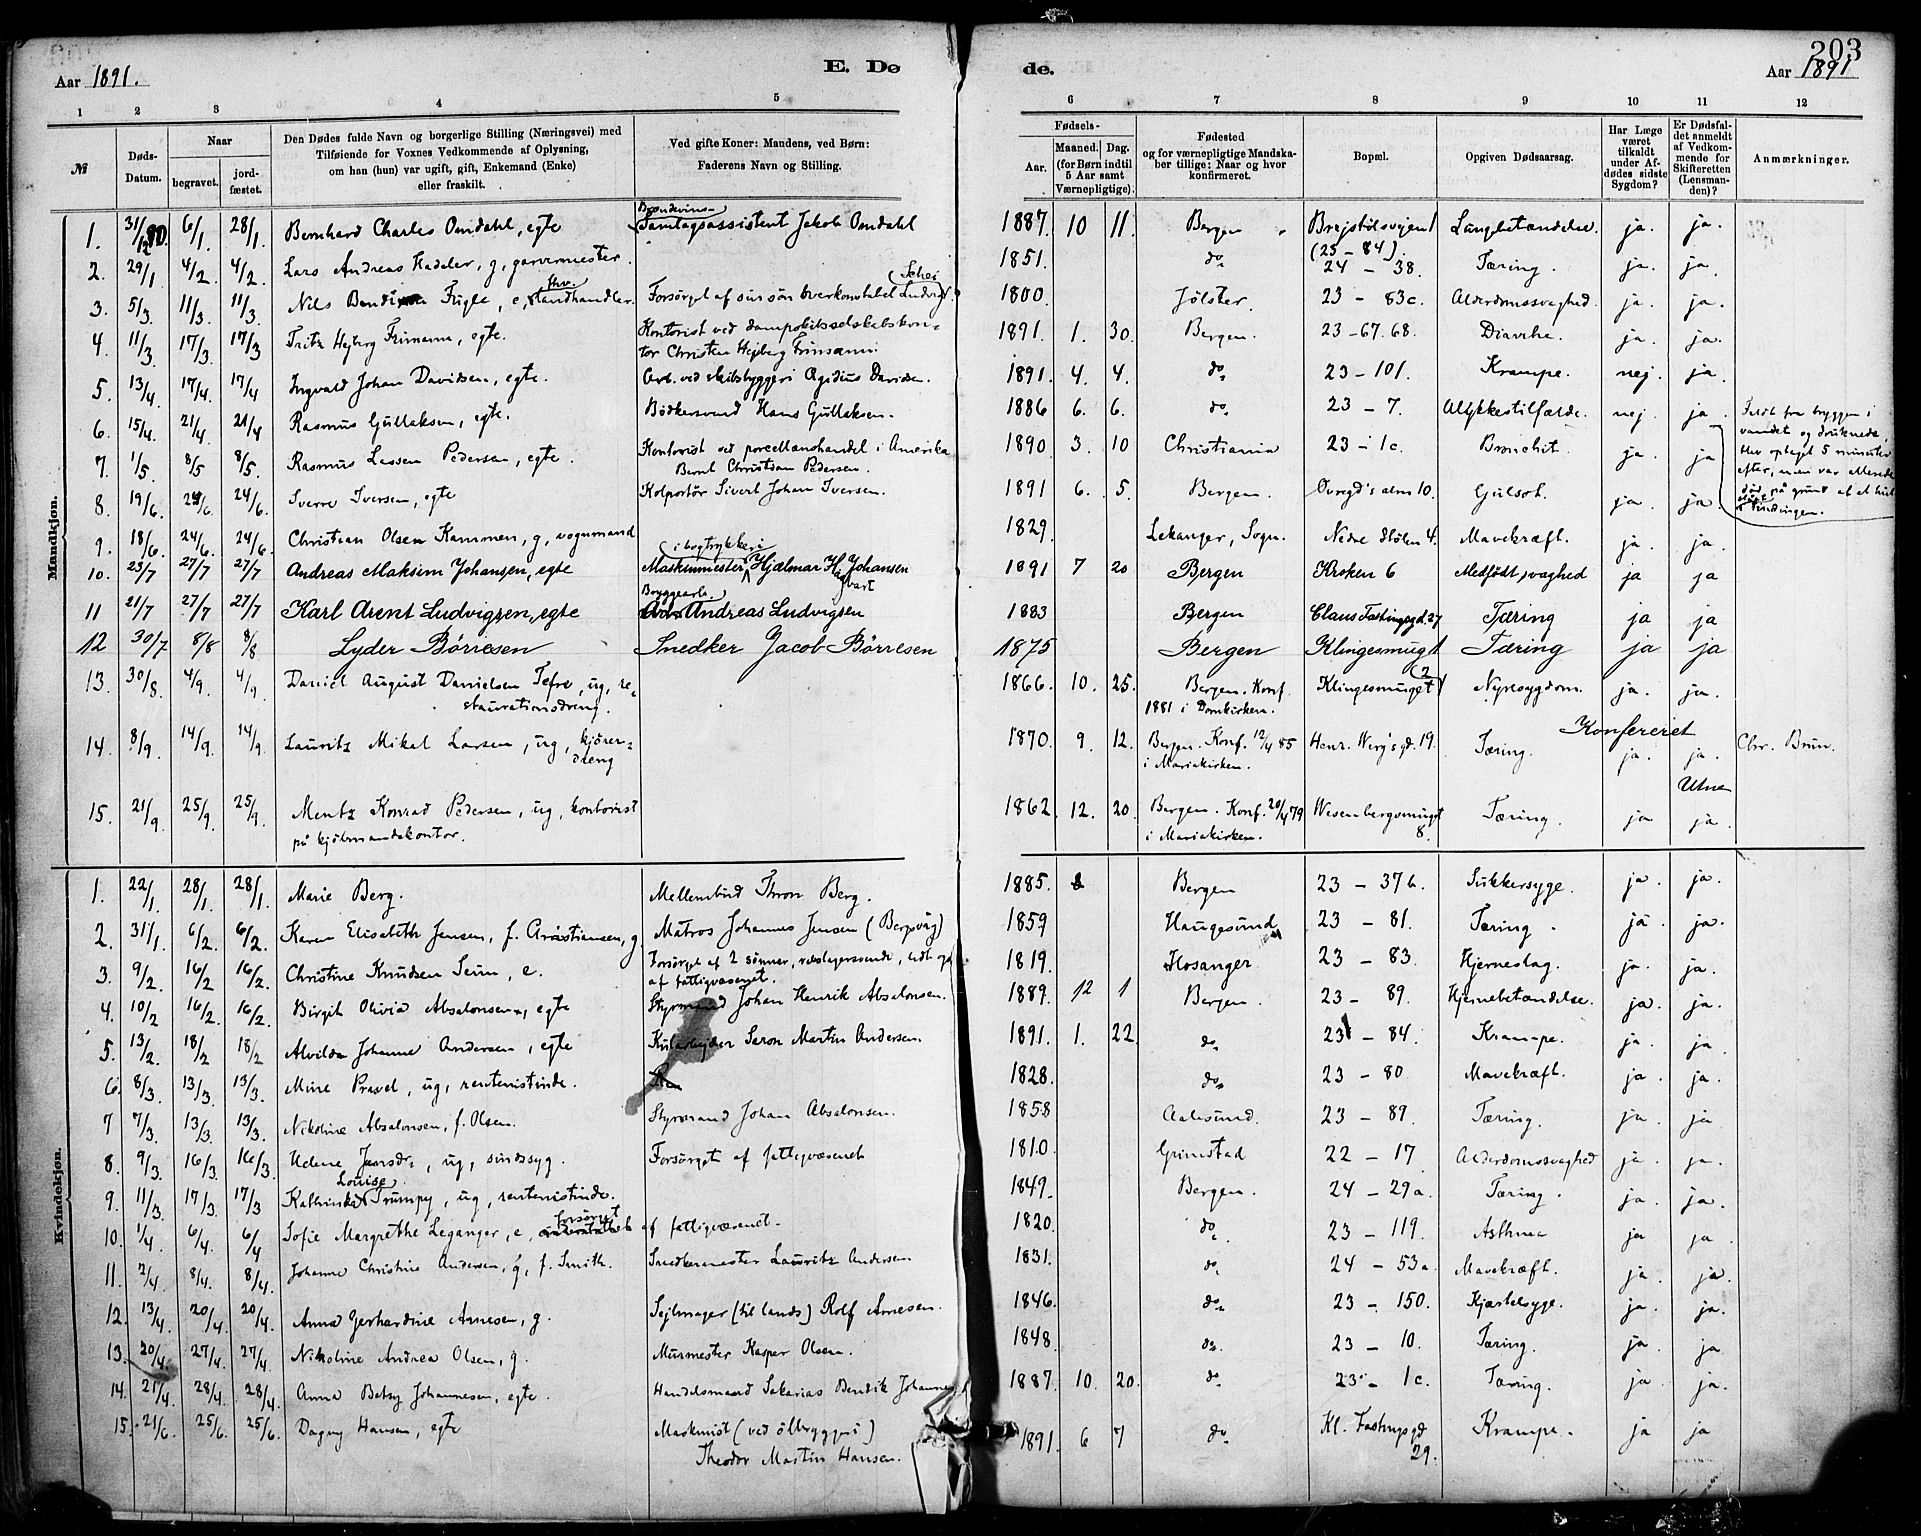 203
Aar 1891.
E. Dø
de.
Aar 1891
1 2 3 4 5 6 7 8 9 10 11 12
№
Døds-Datum.
Naar
begravet.
jordfæstet.
Den Dødes fulde Navn og borgerlige Stilling (Næringsvei) med
Tilføiende for Voxnes Vedkommende af Oplysning,
om han (hun) var ugift, gift, Enkemand (Enke)
eller fraskilt.
Ved gifte Koner: Mandens, ved Børn:
Faderens Navn og Stilling.
Fødsels-
Aar.
Maaned. Dag.
(for Børn indtil
5 Aar samt
Værnepligtige).
Fødested
og for værnepligtige Mandska-
ber tillige: Naar og hvor
konfirmeret.
Bopæl.
Opgiven Dødsaarsag.
Har Læge
været
tilkaldt
under Af-
dødes sidste
Sygdom?
Er Dødsfal-
det anmeldt
af Vedkom-
mende for
Skifteretten
(Lensman-
den)?
Anmærkninger.
Mandkjøn.
1. 31/12 90. 6/1. 28/1. Bernhard Charles Omdahl, egte Brændevins-samlagsassistent Jakob Omdahl 1887 10 11. Bergen Brejstølsvejen 1 (25-84). Lungbetændelse. ja. ja.
2. 29/1 4/2. 4/2. Lars Andreas Hadeler, g, garvermester. 1851. do 24 - 38. Tæring. ja. ja.
3. 5/3. 11/3. 11/3. Nils Fugle, e, fhv. landhandler. Forsörget af sin sön overkonstabel Ludvig 1800. Jölster. 23 - 83c. Alderdomssvaghed. ja. ja.
4. 11/3. 17/3. 17/3 Fritz Hejberg Frimann, egte. Kontorist ved dampskibsselskabskon-
tor Christen Hejberg Frimann. 1891. 1. 30. Bergen. 23 - 67.68. Diarrhe. ja. ja.
5. 13/4. 17/4. 17/4 Ingvald Johan Davidsen, egte. Arb. ved skibsbyggeri Agidius Davidsen. 1891. 4. 4. do 23 - 101. Krampe. nej. ja.
6. 15/4. 21/4. 21/4 Rasmus Gullaksen, egte. Bödkersvend Hans Gullaksen. 1886 6. 6. do 23 - 7. Ulykkestilfælde. nej. ja. Faldt fra bryggen i
vandet og druknede,
blev optaget 5 minuter
efter, men var allerede
död på grund af et
7. 1/5 8/5 8/5. Rasmus Lassen Pedersen, egte. Kontorist ved porcellænshandel i Amerika
Bernt Christian Pedersen. 1890 3. 10 Christiania 23 - 1c. Bronchit. ja. ja
8. 19/6. 24/6. 24/6. Sverre Iversen, egte Kolportör Sivert Johan Iversen. 1891 6. 5. Bergen. Øvregd's alm 10. Gulsot. ja. ja.
9. 18/6. 24/6. 24/6. Christian Olsen Kammen, g, vognmand 1829. Lekanger, Sogn. Nedre 4. Mavekræft. ja. ja.
10. 23/7 27/7 27/7 Andreas Maksim Johansen, egte Maskinmester i bogtrykkeri Hjælmar Hagbart Johansen 1891 7 20 Bergen Kroken 6 Medfödt svaghed ja ja
11 21/7 27/7 27/7 Karl Arent Ludvigsen, egte Bryggearb. Andreas Ludvigsen 1883 Bergen Claus Fastingsgd. 27 Tæring ja ja
12 30/7 8/8 8/8 Lyder Börresen Snedker Jacob Börresen 1875 Bergen Klingesmug 1 Tæring ja ja
13. 30/8. 4/9. 4/9. Daniel August Danielsen Tefre, ug, re-
staurationsdreng. 1866. 10. 25. Bergen. Konf.
1881 i Domkirken. Klingesmuget 2 Nyresygdom. ja. ja.
14. 8/9. 14/9. 14/9. Lauritz Mikal Larsen, ug, kjörer-
dreng 1870. 9. 12. Bergen. Konf. 12/4 85
i Mariakirken. Henr. Werg'sgd. 19. Tæring. Konfereret ja. ja. Chr. Brun.
Utne
15. 21/9. 25/9. 25/9. Mentz Konrad Pedersen, ug, kontorist
på kjöbmandskontor. 1862. 12. 20. Bergen. Konf. 20/4 79
i Mariakirken. Wesenbergsmuget
8. Tæring. ja ja.
Kvindekjøn.
1. 22/1. 28/1. 28/1. Marie Berg. Mellembud Thron Berg. 1885. Bergen 23 - 37b. Sukkersyge. ja. ja.
2. 31/1. 6/2. 6/2. Karen Elisabeth Jensen, f. Christiansen, g. Matros Johannes Jensen (Bergsvåg) 1859 Haugesund 23 - 81. Tæring. ja. ja.
3. 9/2. 16/2 16/2 Christine Knudsen Seim, e. Forsörget af 2 sönner,
af fattigvæsenet. 1819. Hosanger 23 - 83. Hjerneslag. ja. ja.
4. 10/2 16/2. 16/2. Birgit Olivia Absalonsen, egte Styrmand Johan Henrik Absalonsen. 1889. 12 1 Bergen. 23 - 89. Hjernebetændelse. ja. ja.
5. 13/2. 18/2 18/2 Alvilda Johanne Andersen, egte Kularbejder Seron Martin Andersen. 1891. 1. 22. do 23 - 84. Krampe. ja. ja.
6. 8/3. 13/3. 13/3. Mine Pravel, ug, rentenistinde. 1828. do 23 - 80 Mavekræft. ja. ja.
7 7/3. 13/3. 13/3. Nikoline Absalonsen, f. Olsen. Styrmand Johan Absalonsen. 1858 Aalesund. 23 - 89. Tæring. ja. ja
8. 9/3. 16/3. 16/3 Helene Jansdr., ug, sindssyg. Forsörget af fattigvæsenet 1810. Grimstad 22 - 17 Alderdomssvaghed ja. ja.
9. 11/3. 17/3. 17/3 Kathrinka Louise Trumpy, ug, rentenistinde. 1849. Bergen. 24 - 29a. Tæring. ja. ja.
10. 1/4. 6/4. 6/4 Sofie Margrethe Leganger, e, forsörget af fattigvæsenet. 1820. do. 23 - 119. Asthma ja ja.
11. 2/4. 8/4. 8/4. Johanne Christine Andersen, g, f. Smith. Snedkermester Lauritz Andersen 1831. do 24 - 53a. Mavekræft. ja. ja.
12. 13/4. 20/4. 20/4. Anna Gerhardine Arnesen, g. Sejlmager (til lands) Rolf Arnesen. 1846. do 23 - 150. Kjærtelsyge. ja. ja.
13. 20/4. 27/4. 27/4. Nikoline Andrea Olsen, g. Murmester Kasper Olsen. 1848. do. 23 - 10. Tæring. ja. ja
14. 21/4. 28/4. 28/4. Anna Betsy Johannesen, egte. Handelsmand Sakarias Bendik Johannes 1887. 10. 20. do 23 - 1c. Tæring. ja. ja.
15. 21/6. 25/6. 25/6. Dagny Hansen, egte Maskinist (ved ölbryggeri)
Theodor Martin Hansen. 1891. 6 7 do Kl. Fastingsgd
29. Krampe. ja ja